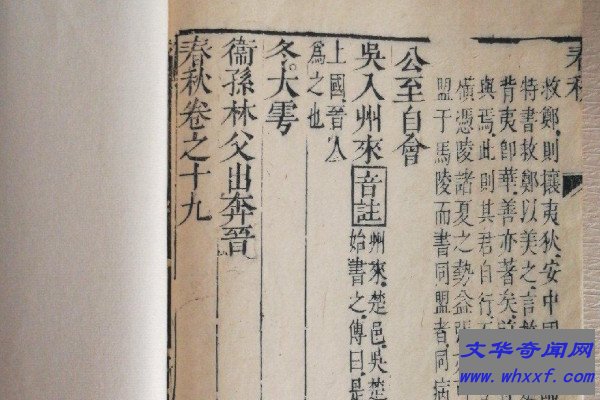 春秋
救鄭則攘夷狄安中國
特書救鄭以美之言救
背夷即華善亦著矣
與焉此則其君自行
憑陵諸夏之勢益張
盟于馬陵而書同盟者同病
公至自會
吳入州來 音註 州來楚邑吳楚
始書之傳曰是
上國晉人
為之也
冬大雩
衞孫林父出奔晉
春秋卷之十九
文华奇闻网
www.whxxf.com